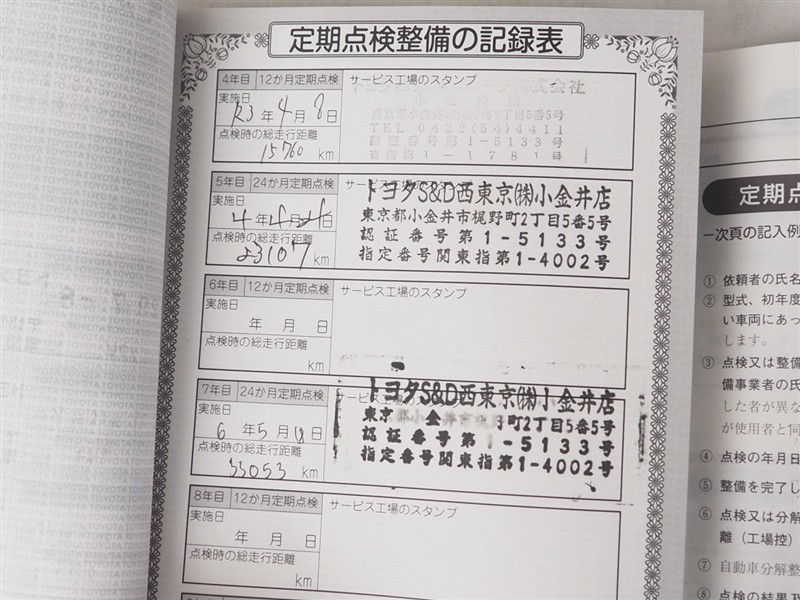 定期点検整備の記録表
4年目 12か月定期点検 サービス工場のスタンプ
実施日
R3年4月8日
東京都小金井市梶野町2丁目5番5号
点検時の総走行距離
TEL 0422(54)4411
認証番号第1-5133号
15760 km
5年目 24か月定期点検 サービス工場のスタンプ
トヨタS&D西東京㈱小金井店
実施日
東京都小金井市梶野町2丁目5番5号
4年4月 日
認証番号第1-5133号
点検時の総走行距離
指定番号関東指第1-4002号
23107 km
6年目 12か月定期点検 サービス工場のスタンプ
実施日
年 月 日
点検時の総走行距離
km
7年目 24か月定期点検 サービス工場のスタンプ
トヨタS&D西東京㈱小金井店
実施日
東京 金 町2丁目5番5号
6年5月18日
認証番号第1-5133号
点検時の総走行距離
指定番号関東指第1-4002号
33053 km
8年目 12か月定期点検 サービス工場のスタンプ
実施日
年 月 日
点検時の総走行距離
km
定期点
一次頁の記入例
① 依頼者の氏名
② 型式、初年度
い車両にあっ
します。
③ 点検又は整備
備事業者の氏
した者が異な
が使用者と同
④ 点検の年月日
⑤ 整備を完了し
⑥ 点検又は分解
離（工場控）
⑦ 自動車分解整
⑧ 点検の結果及